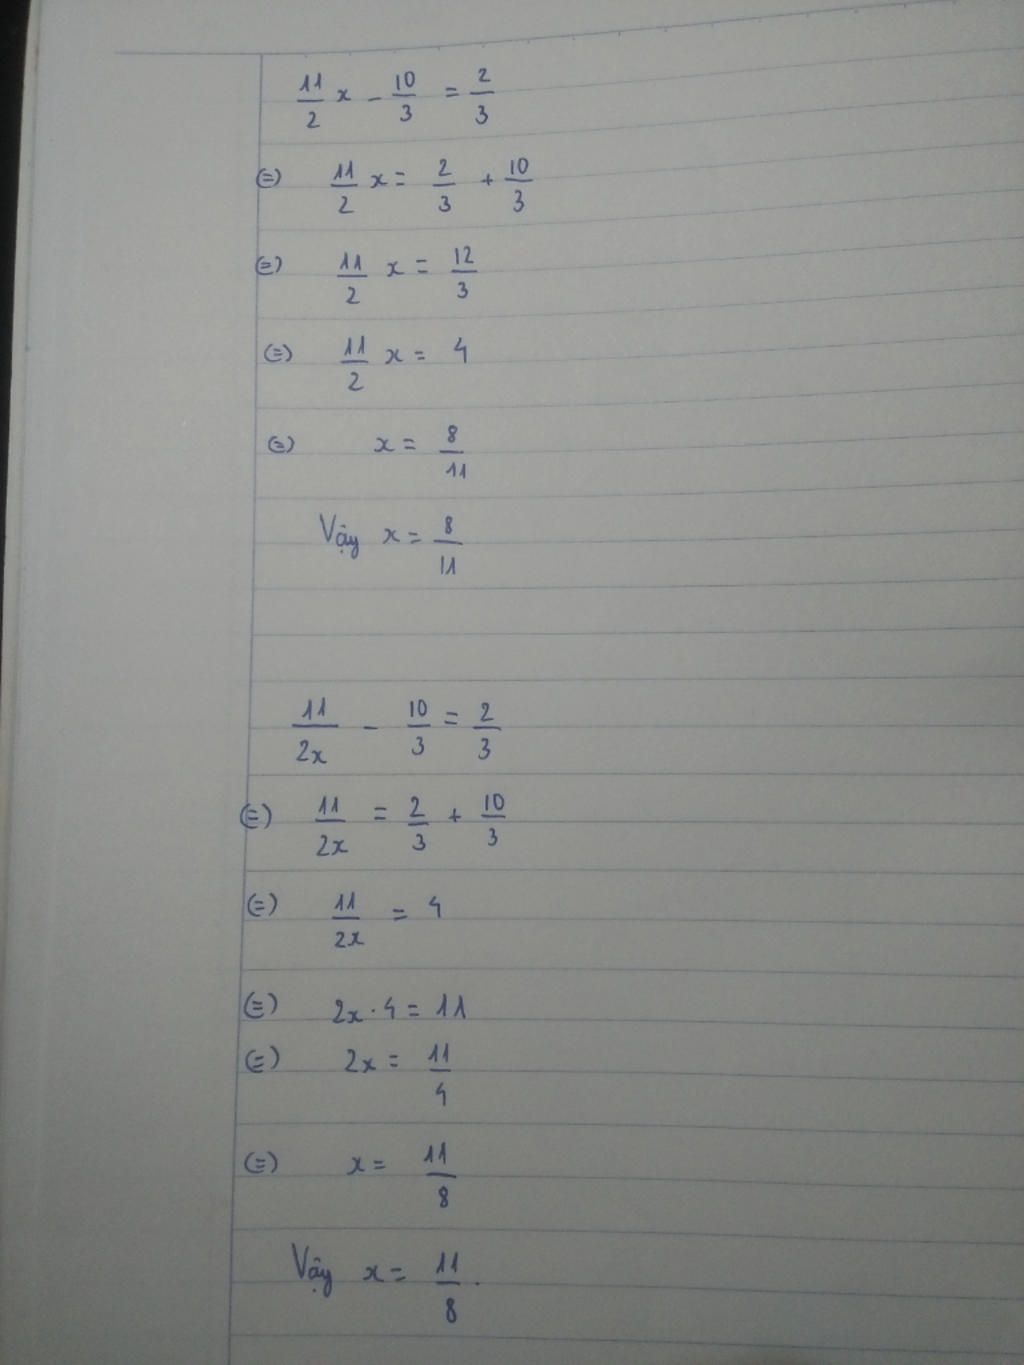 11/2 x - 10/3 = 2/3
(=) 11/2 x = 2/3 + 10/3
(=) 11/2 x = 12/3
(=) 11/2 x = 4
(=) x = 8/11
Vậy x = 8/11
11/2x - 10/3 = 2/3
(=) 11/2x = 2/3 + 10/3
(=) 11/2x = 4
(=) 2x · 4 = 11
(=) 2x = 11/4
(=) x = 11/8
Vậy x = 11/8.